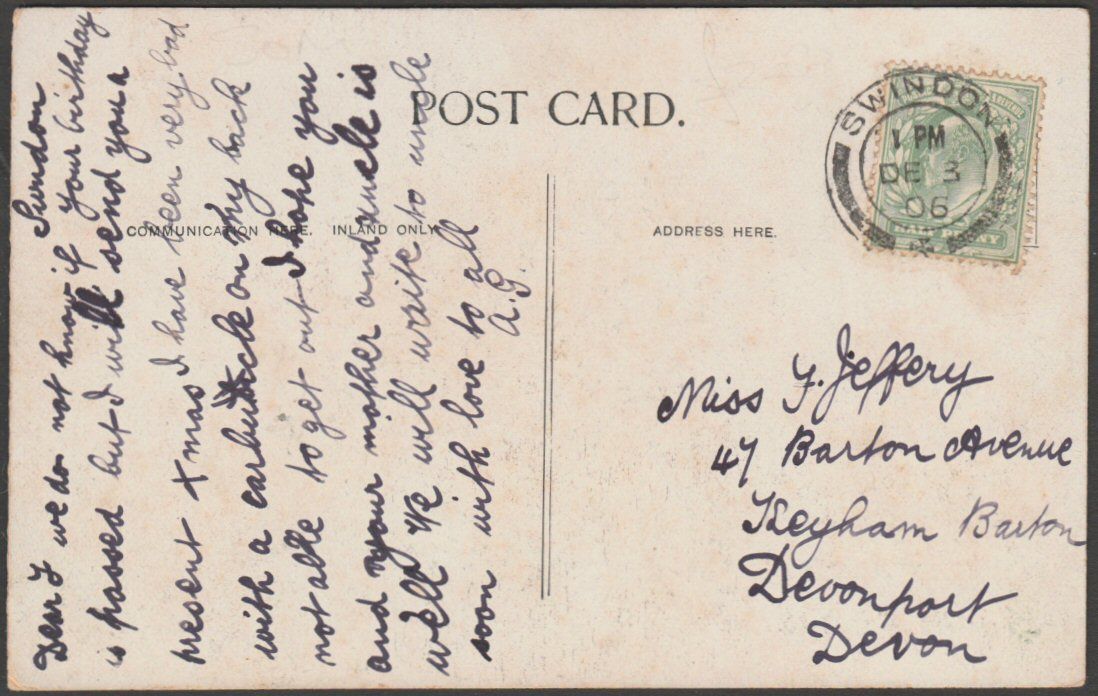 POST CARD.
COMMUNICATION HERE. INLAND ONLY.
ADDRESS HERE.
SWINDON
1 PM
DE 3
06
HALFPENNY
Swindon
Dear F we do not know if your birthday
is passed but I will send you a
present Xmas I have been very bad
with a carbuncle on my back
not able to get out I hope you
and your mother and uncle is
well We will write to uncle
soon with love to all
A.G.
Miss F. Jeffery
47 Barton Avenue
Keyham Barton
Devonport
Devon